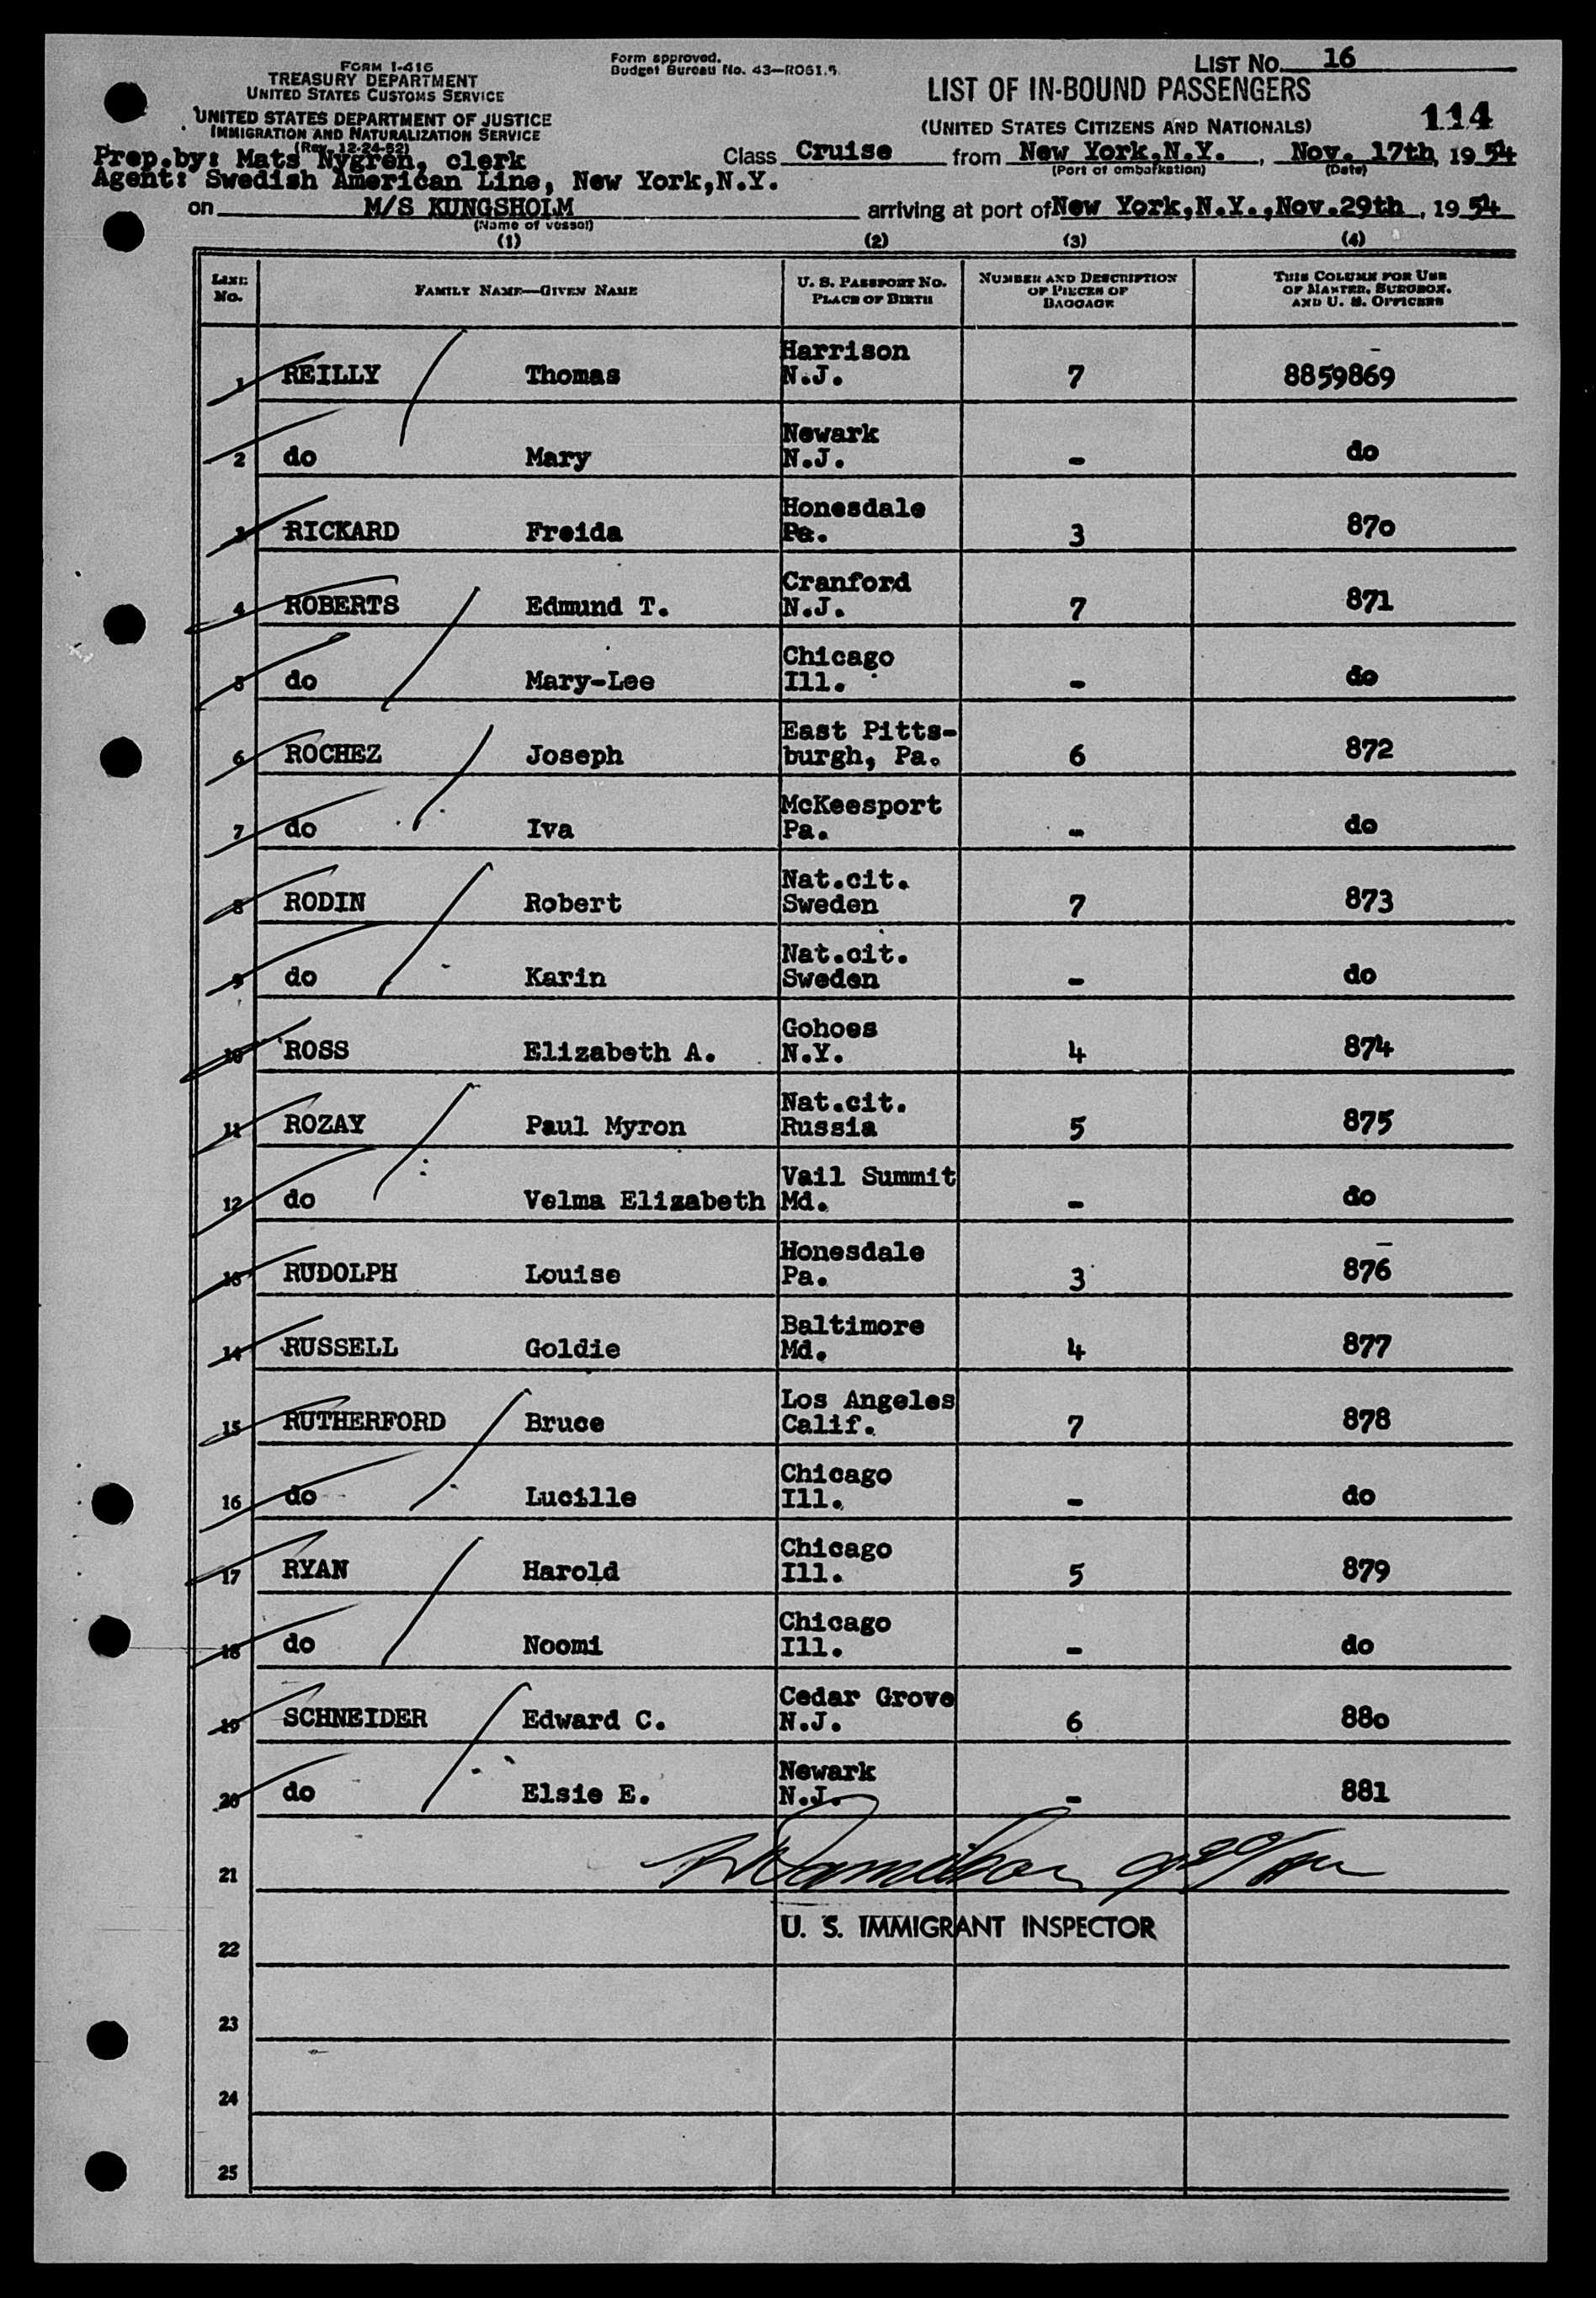 FORM I-416
TREASURY DEPARTMENT
UNITED STATES CUSTOMS SERVICE
UNITED STATES DEPARTMENT OF JUSTICE
IMMIGRATION AND NATURALIZATION SERVICE
(Rev. 12-24-52)
Form approved.
Budget Bureau No. 43-R061.5.
LIST NO. 16
LIST OF IN-BOUND PASSENGERS
(UNITED STATES CITIZENS AND NATIONALS)
114
Prep.by: Mats Nygren, clerk
Agent: Swedish American Line, New York,N.Y.
Class Cruise from New York,N.Y., Nov. 17th, 1954
(Port of embarkation) (Date)
on M/S KUNGSHOLM arriving at port of New York,N.Y.,Nov.29th, 1954
(Name of vessel)
(1) (2) (3) (4)
LINE NO.
FAMILY NAME—GIVEN NAME
U. S. PASSPORT NO.
PLACE OF BIRTH
NUMBER AND DESCRIPTION
OF PIECES OF
BAGGAGE
THIS COLUMN FOR USE
OF MASTER, SURGEON,
AND U. S. OFFICERS
1 REILLY Thomas Harrison N.J. 7 8859869
2 do Mary Newark N.J. - do
3 RICKARD Freida Honesdale Pa. 3 870
4 ROBERTS Edmund T. Cranford N.J. 7 871
5 do Mary-Lee Chicago Ill. - do
6 ROCHEZ Joseph East Pitts-burgh, Pa. 6 872
7 do Iva McKeesport Pa. - do
8 RODIN Robert Nat.cit. Sweden 7 873
9 do Karin Nat.cit. Sweden - do
10 ROSS Elizabeth A. Gohoes N.Y. 4 874
11 ROZAY Paul Myron Nat.cit. Russia 5 875
12 do Velma Elizabeth Vail Summit Md. - do
13 RUDOLPH Louise Honesdale Pa. 3 876
14 RUSSELL Goldie Baltimore Md. 4 877
15 RUTHERFORD Bruce Los Angeles Calif. 7 878
16 do Lucille Chicago Ill. - do
17 RYAN Harold Chicago Ill. 5 879
18 do Noomi Chicago Ill. - do
19 SCHNEIDER Edward C. Cedar Grove N.J. 6 880
20 do Elsie E. Newark N.J. - 881
21
U. S. IMMIGRANT INSPECTOR
22
23
24
25